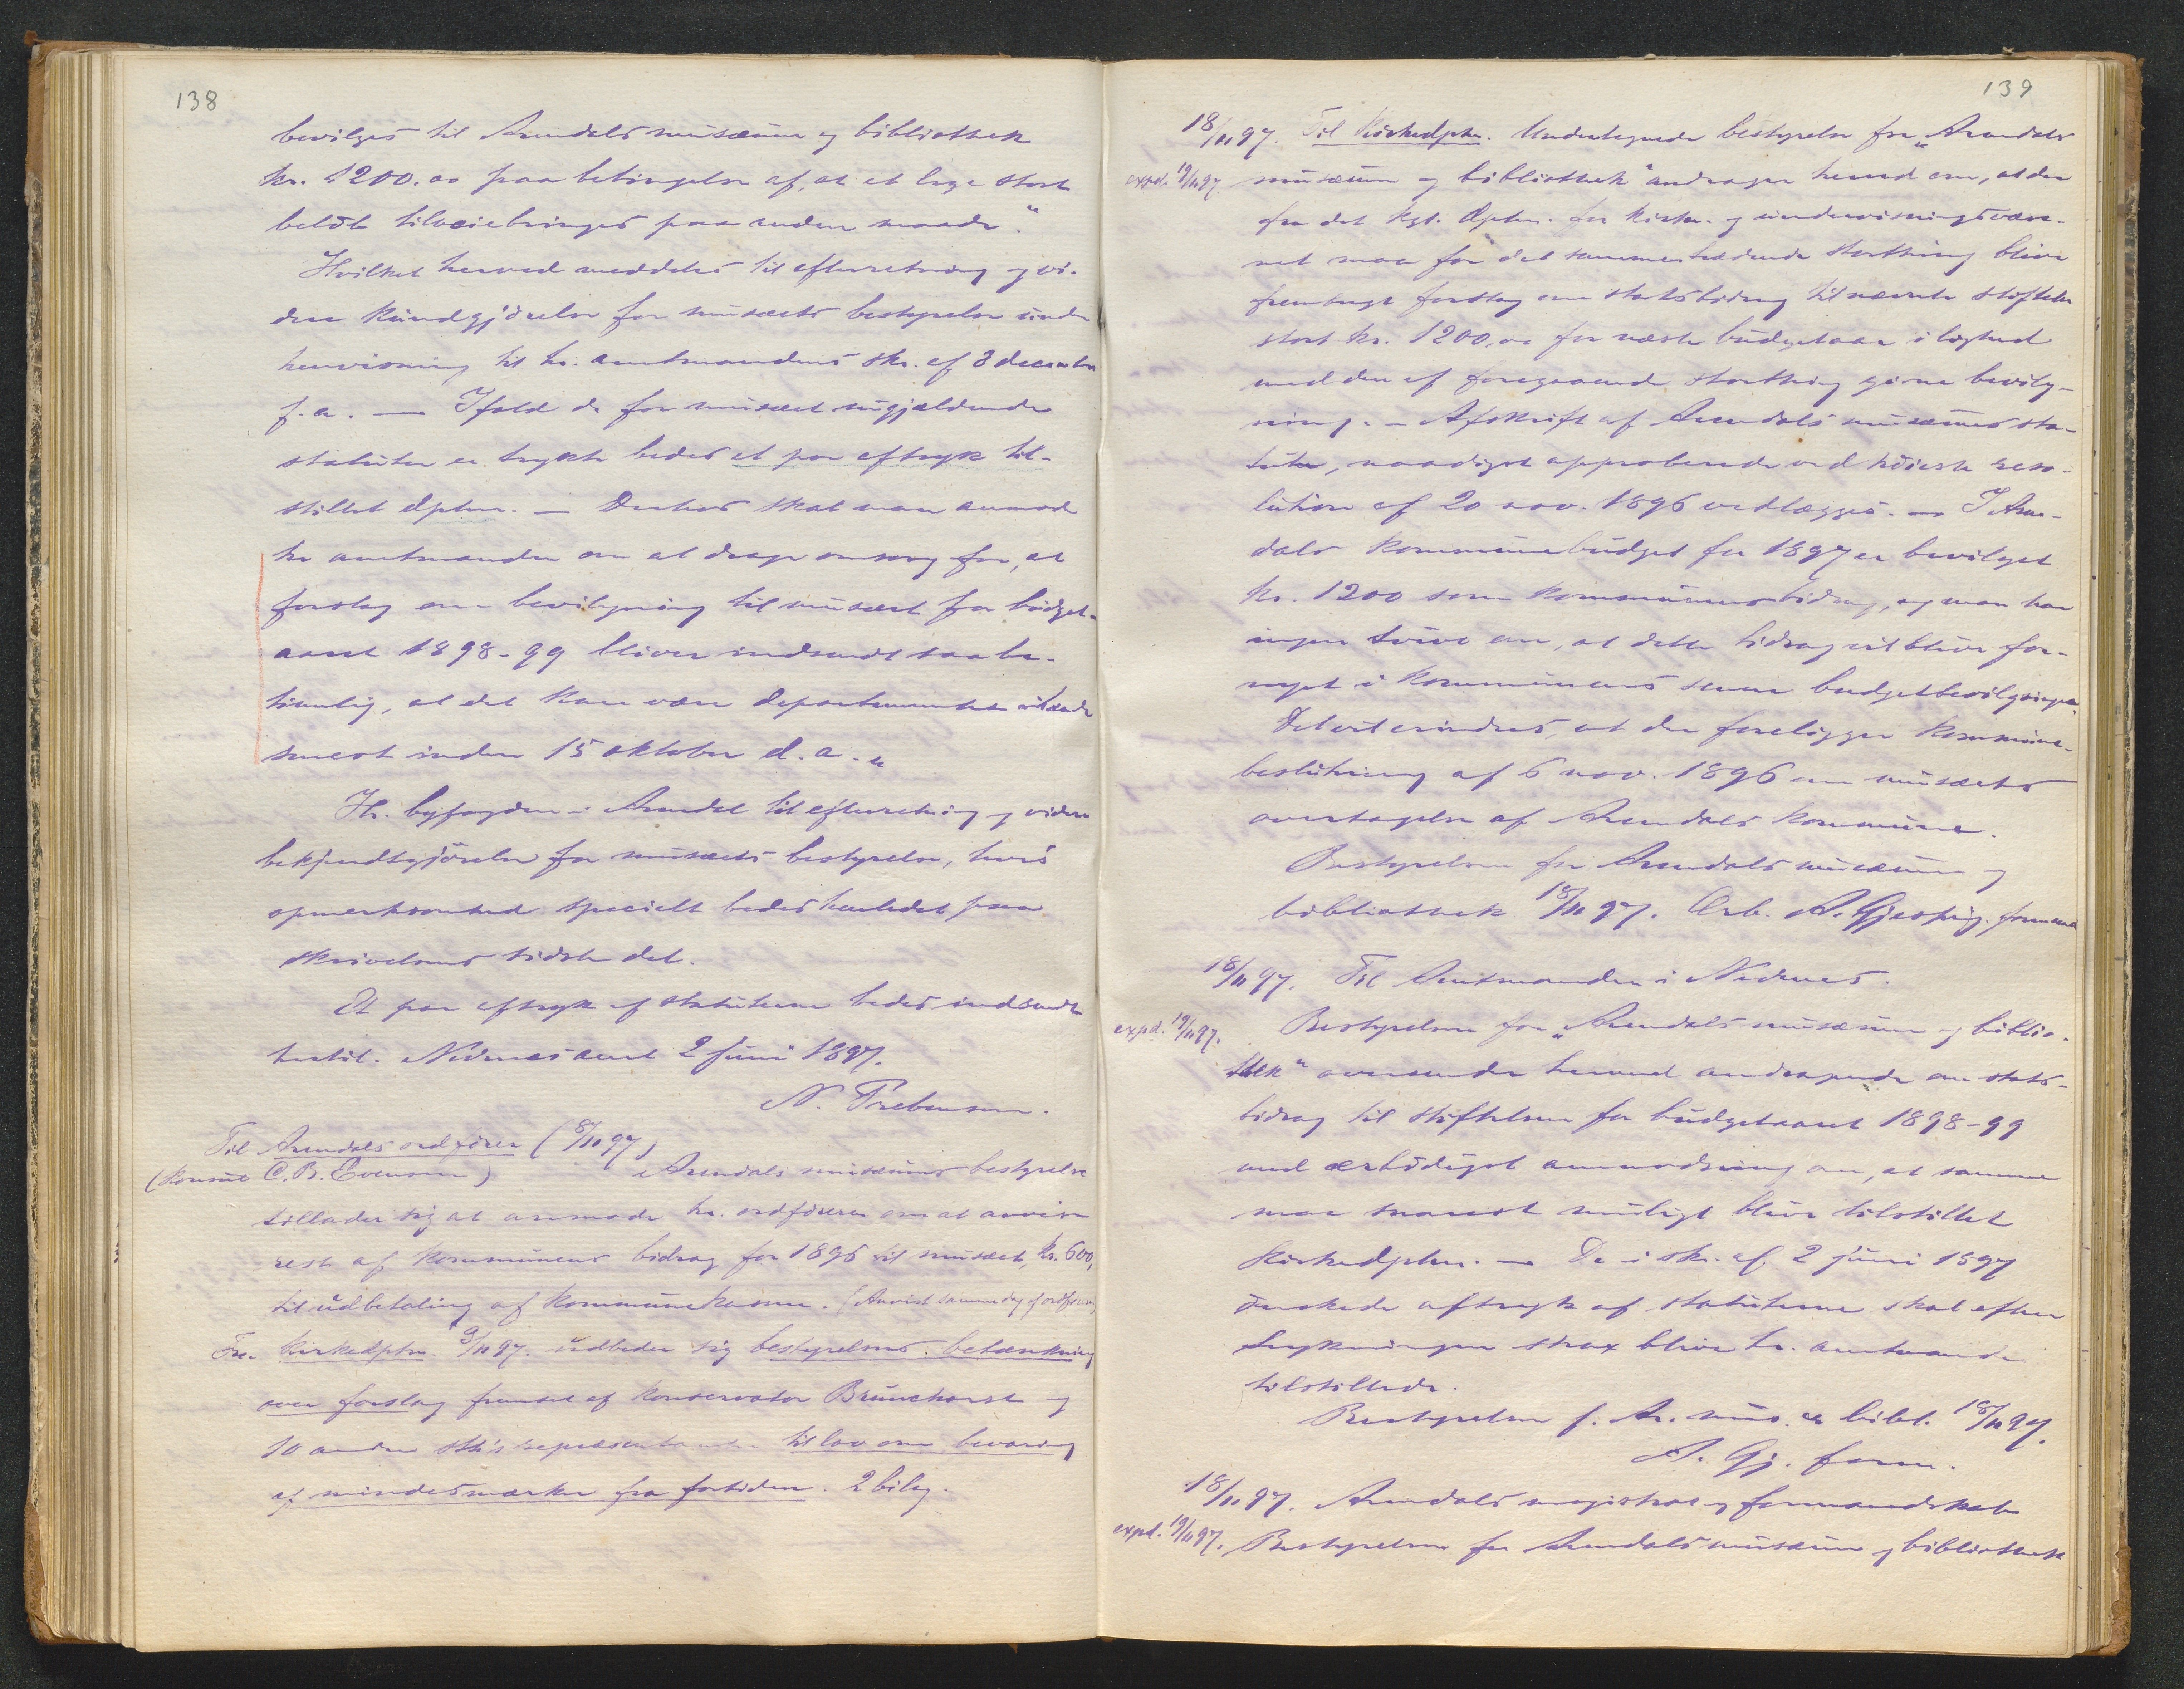 138
bevilges til Arendals musæum og bibliothek
kr. 1200.00 paa betingelse af, at et lige stort
beløb tilveiebringes paa anden maade.“
Hvilket herved meddeles til efterretning og vi-
dere kundgjörelse for musæets bestyrelse under
henvisning til hr. amtmandens skr. af 8 december
f. a. — Ifald de for musæet nugjældende
statuter er trykte bedes et par aftryk til-
stillet dptm. — Derhos skal man anmode
hr amtmanden om at drage omsorg for, at
forslag om bevilgning til musæet for budget-
aaret 1898-99 bliver indsendt saa be-
timelig, at det kan være departementet ihænde
senest inden 15 oktober d. a. „
Hr. byfogden i Arendal til efterretning og videre
bekjendtgjörelse for musæets bestyrelse, hvis
opmerksomhed specielt bedes henledet paa
skrivelsens sidste del.
Et par aftryk af statuterne bedes indsendt
hertil. Nedenes amt 2 juni 1897.
N. Prebensen.
Til Arendals ordförer (8/11 97)
(Konsul C. B. Evensen) Arendals musæums bestyrelse
tillader sig at anmode hr. ordföreren om at anvise
rest af kommunens bidrag for 1896 til musæet, kr. 600,
til udbetaling af kommunekassen. (Anvist samme dag af ordföreren)
Fra Kirkedptm. 9/11 97. udbeder sig bestyrelsens betænkning
over forslag fremsat af konservator Brunchorst og
10 andre sth's repræsentanter til lov om bevaring
af mindesmærker fra fortiden. 2 bilag.
139
18/11 97. Til Kirkedptm. Undertegnede bestyrelse for „Arendals
expd. 19/11 97. musæum og bibliothek“ andrager herved om, at der
fra det kgl. dptm. for kirke- og undervisningsvæse-
net maa for det sammentrædende storthing blive
fremsagt forslag om statsbidrag til nævnte stiftelse
stort kr. 1200,00 for næste budgetaar i lighed
med den af foregaaende storthing givne bevilg-
ning. — Afskrift af Arendals musæums sta-
tuter, naadigst approberede ved höieste reso-
lution af 20 nov. 1896 vedlægges. — I Aren-
dals kommunebudget for 1897 er bevilget
kr. 1200 som kommunens bidrag, og man har
ingen tvivl om, at dette bidrag vil blive for-
nyet i kommunens senere budgetbevilgninger.
Det vil erindres, at der foreligger kommune-
beslutning af 6 nov. 1896 om musæets
overtagelse af Arendals kommune.
Bestyrelsen for Arendals musæum og
bibliothek 18/11 97. Ærb. A. Gjessing. formand
18/11 97. Til Amtmanden i Nedenes.
expd. 19/11 97. Bestyrelsen for „Arendals musæum og biblio-
thek“ oversender herved andragende om stats-
bidrag til stiftelsen for budgetaaret 1898-99
med ærbödigst anmodning om, at samme
maa snarest muligt blive tilstillet
Kirkedptm. — De i skr. af 2 juni 1897
önskede aftryk af statuterne skal efter
trykningen strax blive hr. amtmanden
tilstillede.
Bestyrelsen f. Ar. mus. & bibl. 18/11 97.
A. Gj. form.
18/11 97. Arendals magistrat og formandskab
expd. 19/11 97. Bestyrelsen for Arendals musæum og bibliothek